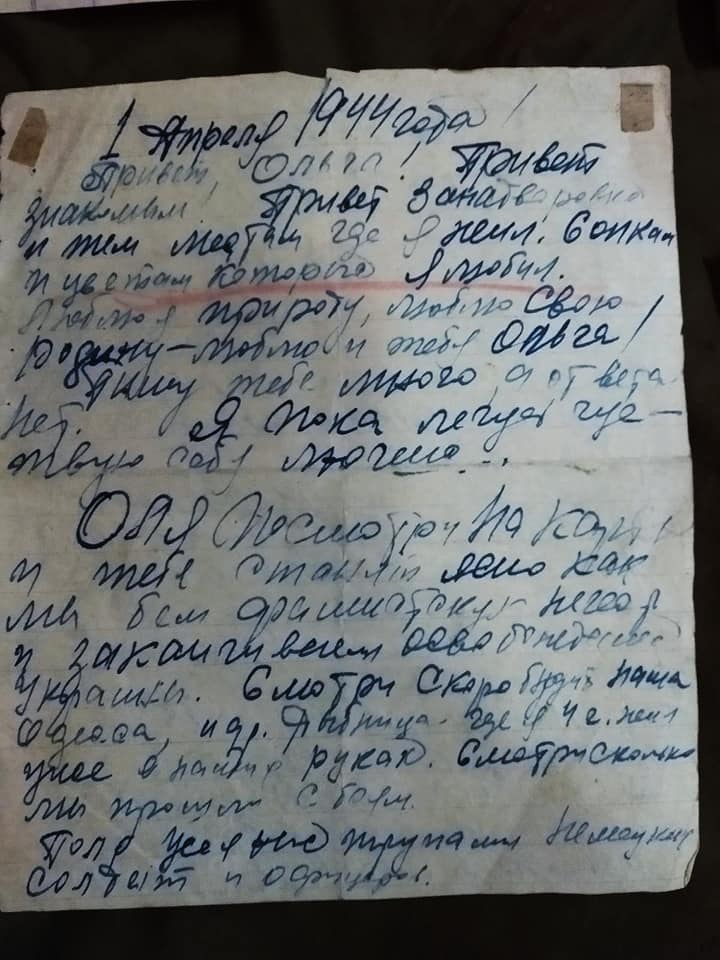 1 Апреля 1944 года!
Привет, Ольга! Привет
знакомым! Привет
и тем местам где я жил. Сопкам
и цветам которые я любил.
Люблю я природу, люблю свою
родину – люблю и тебя Ольга!
Пишу тебе много, а ответа
нет. Я пока легуся чуе-
твую себя
Оля посмотри на карту
и тебе станет ясно как
мы бем фашистскую
и заканчиваем освобождение
Украины. Смотри скоро будет наша
Одесса, и др. Рыбница где я 4 г. жил
уже в наших руках. Смотри сколько
мы прошли с боем.
Поля усеяные трупами немецких
солдат и офицеров.